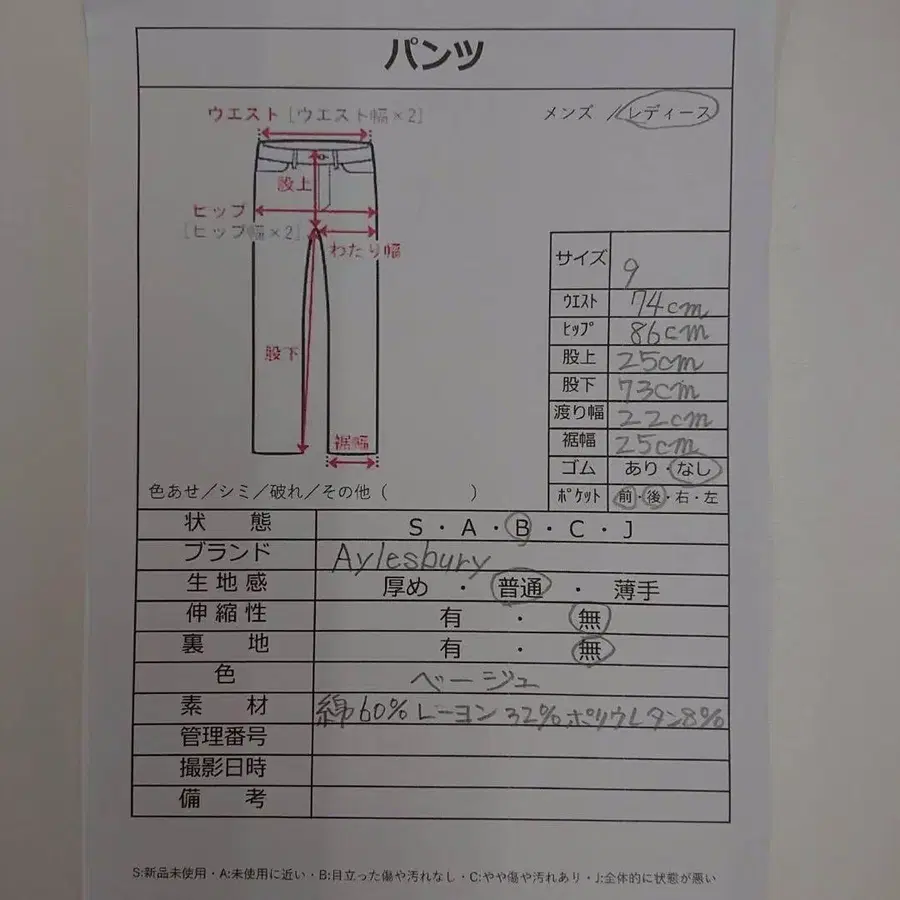 パンツ
ウエスト [ウエスト幅×2]
メンズ / レディース
股上
ヒップ
[ヒップ幅×2]
わたり幅
股下
裾幅
サイズ 9
ウエスト 74cm
ヒップ 86cm
股上 25cm
股下 73cm
渡り幅 22cm
裾幅 25cm
ゴム あり・なし
ポケット 前・後・右・左
色あせ/シミ/破れ/その他 ( )
状態 S・A・B・C・J
ブランド Aylesbury
生地感 厚め ・ 普通 ・ 薄手
伸縮性 有 ・ 無
裏地 有 ・ 無
色 ベージュ
素材 綿60% レーヨン32% ポリウレタン8%
管理番号
撮影日時
備考
S:新品未使用・A:未使用に近い・B:目立った傷や汚れなし・C:やや傷や汚れあり・J:全体的に状態が悪い